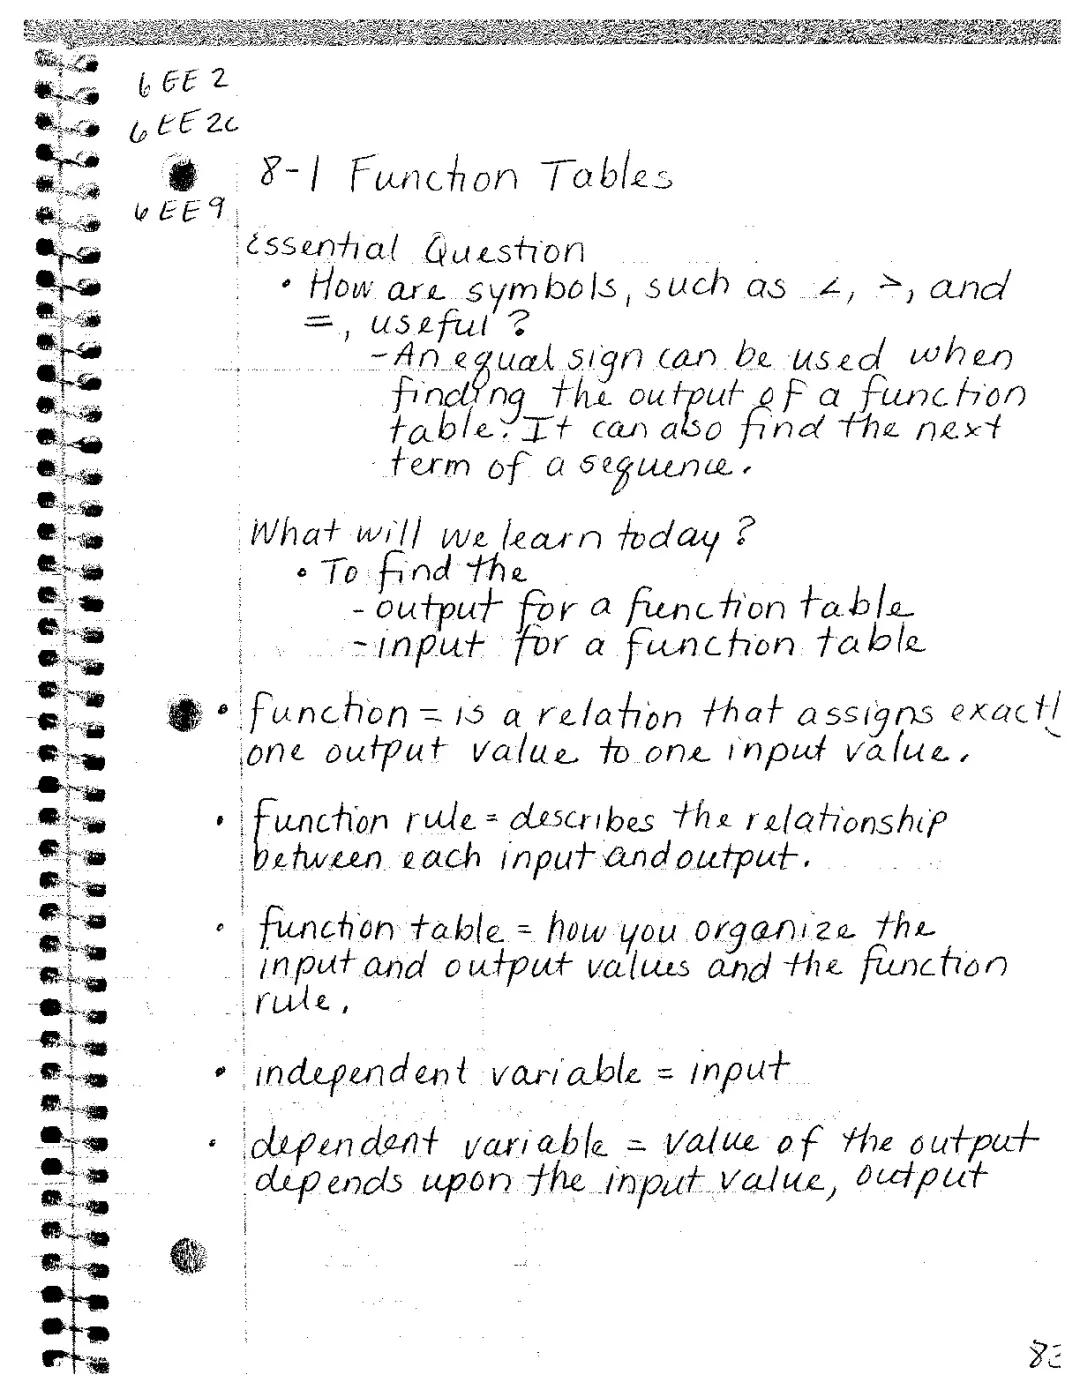 6EE2
6EE2c
8-1 Function Tables
6EE9
Essential Question
• How are symbols, such as <, >, and
=, useful?
- An equal sign can be used when
finding the output of a function
table. It can also find the next
term of a sequence.
What will we learn today?
• To find the
- output for a function table
- input for a function table
• function = is a relation that assigns exactl
one output value to one input value.
• function rule = describes the relationship
between each input and output.
• function table = how you organize the
input and output values and the function
rule.
• independent variable = input
• dependent variable = value of the output
depends upon the input value, output